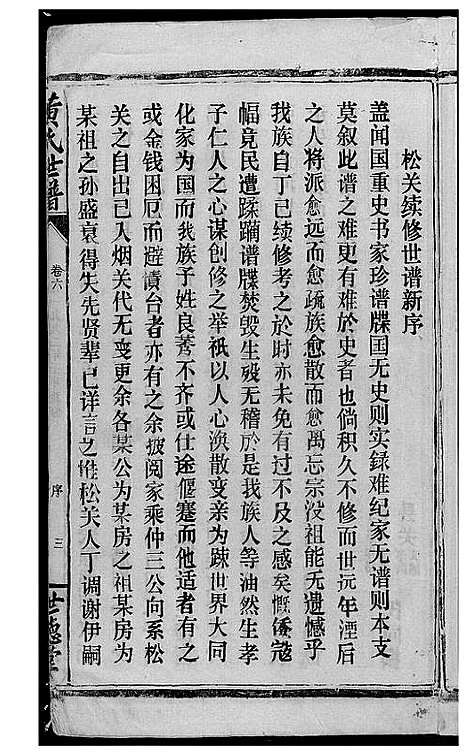 松关续修世谱新序
盖闻国重史书家珍谱牒国无史则实録难纪家无谱则本支
莫叙此谱之难更有难於史者也倘积久不修而世远年湮后
之人将派愈远而愈疏族愈散而愈离忘宗没祖能无遗憾乎
我族自丁己续修考之於时亦未免有过不及之感矣慨倭冦
幅竟民遭蹂躏谱牒焚毁生殁无稽於是我族人等油然生孝
子仁人之心谋创修之举祇以人心涣散变亲为踈世界大同
化家为国而我族子姓良莠不齐或仕途偃蹇而他适者有之
或金钱困厄而避债台者亦有之余披阅家乘仲三公向系松
关之自出己入烟关代无变更余各某公为某房之祖某房为
某祖之孙盛衰得失先贤辈已详言之惟松关人丁调谢伊嗣
黄氏世谱
卷六
序
三
世德堂